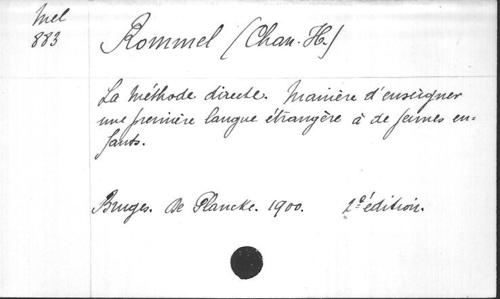 Mel
883
Rommel (Chan. H.)
La méthode directe. Manière d'enseigner
une première langue étrangère à de jeunes en-
fants.
Bruges. De Plancke. 1900. 2e édition.